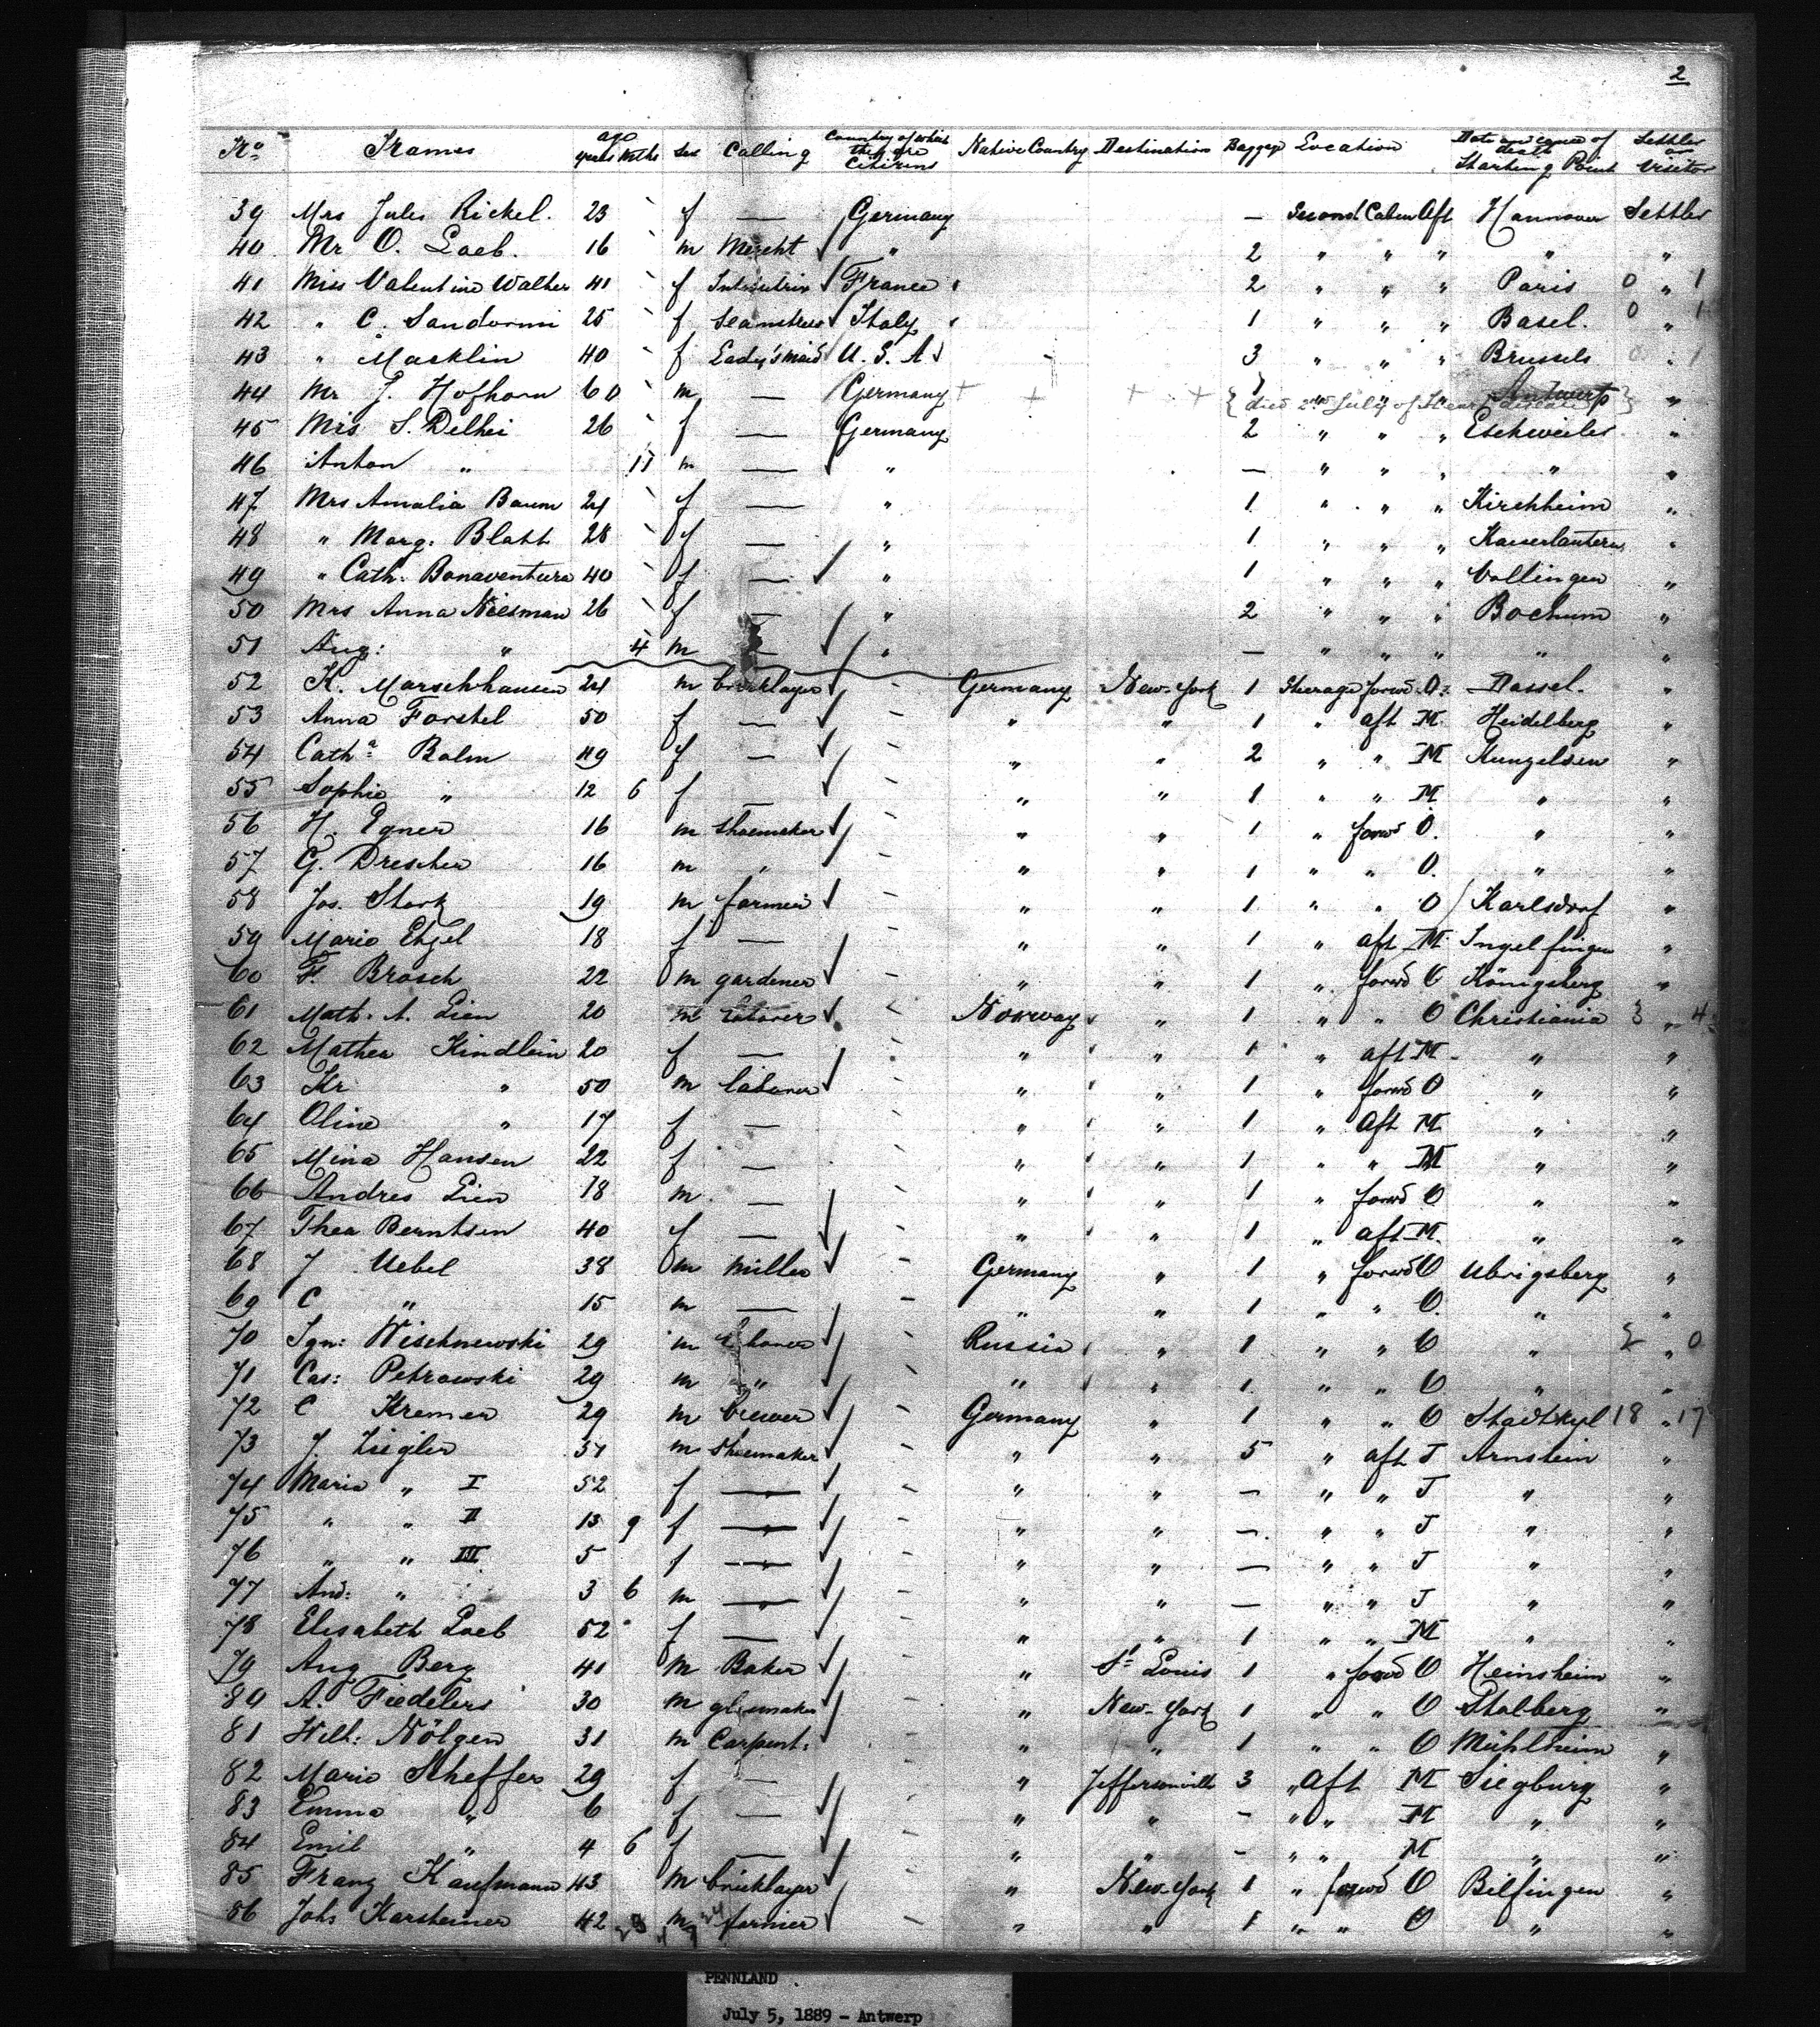 2
No Names age years mths Sex Calling Country of which they are Citizens Native Country Destination Baggage Location Date and cause of death Starting Point Settler or Visitor
39 Mrs Jules Rickel. 23 f — Germany — Second Cabin Aft Hannover Settler
40 Mr O. Loeb. 16 m Mercht " 2 " " " " "
41 Miss Valentine Walther 41 f France 2 " " " Paris 0 " 1
42 " C. Sandormi 25 f Seamstress Italy 1 " " " Basel. 0 " 1
43 " Macklin 40 f Lady's maid U. S. A 3 " " " Brussels 0 " 1
44 Mr J. Hofhorn 60 m — Germany + + + + 1 " " " Antwerp "
{ died 2nd July of Heart disease }
45 Mrs S. Delhei 26 f — Germany 2 " " " Eschweiler "
46 Anton " 11 m — " — " " " " "
47 Mrs Amalia Baum 24 f — " 1 " " " Kirchheim "
48 " Marg: Blatt 28 f — " 1 " " " Kaiserlautern "
49 " Cath: Bonaventura 40 f — " 1 " " " Vollingen "
50 Mrs Anna Niesman 26 f — " 2 " " " Bochum "
51 Aug: " 4 m — " — " " " " "
52 K. Marschhausen 24 m bricklayer Germany New-York 1 Steerage forwd O. Dassel. "
53 Anna Forstel 50 f — " " 1 " aft M. Heidelberg "
54 Catha Balm 49 f — " " 2 " " M Kungelsen "
55 Sophie " 12 6 f — " " 1 " " M " "
56 H. Egner 16 m Shoemaker " " 1 " forwd O. " "
57 G. Drescher 16 m " " " 1 " " O. " "
58 Jos. Stork 19 m farmer " " 1 " " O Karlsdorf "
59 Marie Etzel 18 f — " " 1 " aft M. Ingelfingen "
60 F. Brosch 22 m gardener " " 1 " forwd O Königsberg "
61 Math. A. Lien 20 m laborer Norway " 1 " " O Christiania 3 " 4
62 Mathea Kindlein 20 f — " " 1 " aft M " "
63 Kr " 50 m laborer " " 1 " forwd O " "
64 Oline " 17 f — " " 1 " Aft M " "
65 Mina Hansen 22 f — " " 1 " " M " "
66 Andres Lien 18 m — " " 1 " forwd O " "
67 Thea Berntsen 40 f — " " 1 " aft M. " "
68 J Uebel 38 m miller Germany " 1 " forwd O Ubrigsberg "
69 C " 15 m — " " 1 " " O. " "
70 Ign: Wischnewski 29 m laborer Russia " 1 " " O " 2 " 0
71 Cas: Petrowski 29 m " " " 1 " " O " "
72 C Kremer 29 m brewer Germany " 1 " " O Stadtkyl 18 " 17
73 J. Ziegler 51 m Shoemaker " " 5 " aft J Arnstein "
74 Maria " I 52 f — " " — " " J " "
75 " " II 13 9 f — " " — " " J " "
76 " " III 5 f — " " — " " J " "
77 And: " 3 6 m — " " — " " J " "
78 Elisabeth Loeb 52 f — " " 1 " " M " "
79 Aug Berg 41 m Baker " St Louis 1 " forwd O Heinsheim "
80 A. Fiedelers 30 m " New-York 1 " " O Stolberg "
81 Wilh: Nölgen 31 m Carpent: " " 1 " " O Mühlheim "
82 Marie Scheffer 29 f — " Jeffersonville 3 " Aft M Siegburg "
83 Emma " 6 f — " " - " " M " "
84 Emil " 4 6 f — " " - " " M " "
85 Franz Kaufmann 43 m bricklayer " New-York 1 " forwd O Bilfingen "
86 Johs Karsteiner 42 m farmer " " 1 " " O " "
PENNLAND
July 5, 1889 - Antwerp